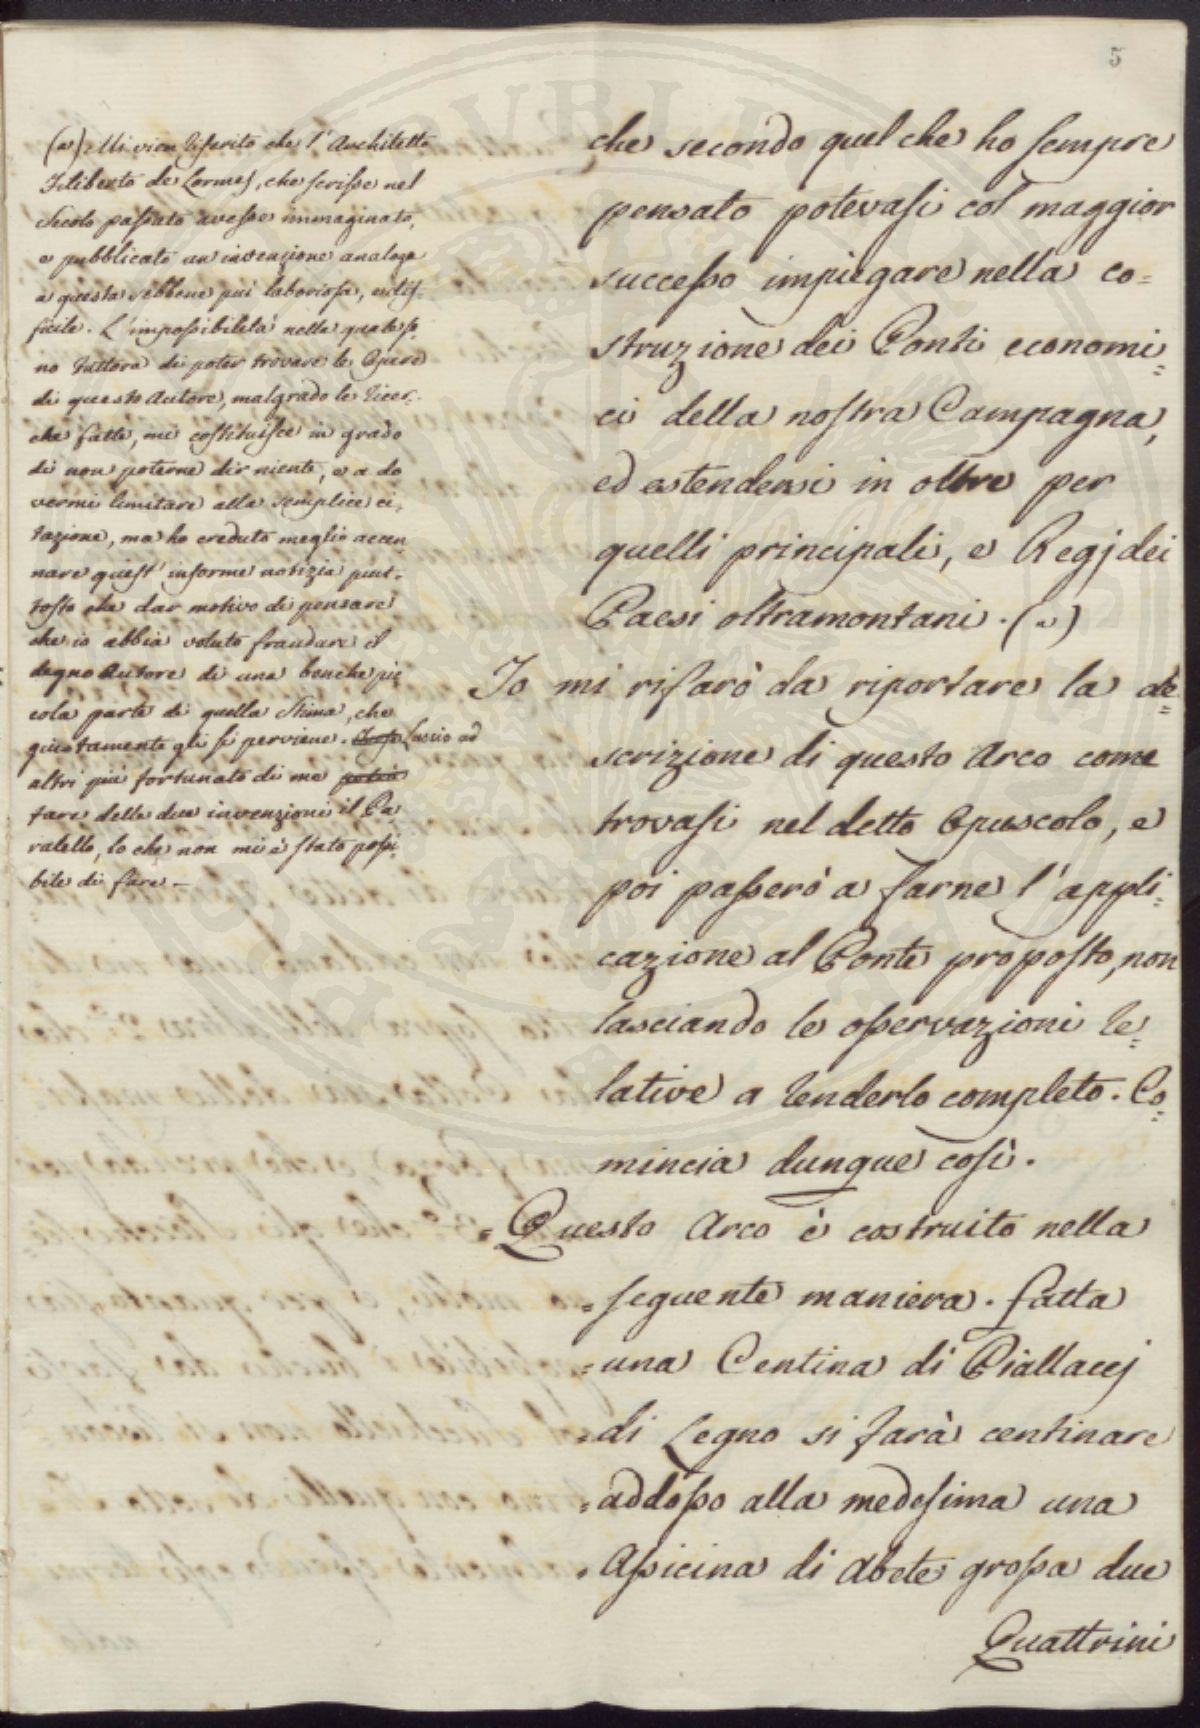 5
che secondo quel che ho sempre
pensato potevasi col maggior
successo impiegare nella co=
struzione dei Ponti economi=
ci della nostra Campagna,
ed estendersi in oltre per
quelli principali, e Regj dei
Paesi oltramontani. (a)
Io mi rifarò da riportare la de=
scrizione di questo Arco come
trovasi nel detto Opuscolo, e
poi passerò a farne l'appli=
cazione al Ponte proposto, non
lasciando le osservazioni re=
lative a renderlo completo. Co=
mincia dunque così.
=Questo Arco è costruito nella
=seguente maniera. fatta
=una Centina di Piallaccj
=di Legno si farà centinare
=addosso alla medesima una
=Assicina di Abete grossa due
Quattrini
(a) Mi vien riferito che l'Architetto
Filiberto de Lormes, che scrisse nel
Secolo passato avesse immaginato,
e pubblicato un invenzione analoga
a questa sebbene più laboriosa, e dif=
ficile. L'impossibilità nella quale so=
no tuttora di poter trovare le Opere
di questo Autore, malgrado le ricer=
che fatte, mi costituisce in grado
di non poterne dir niente, e a do
vermi limitare alla semplice ci=
tazione, ma ho creduto meglio accen=
nare quest'informe notizia piut=
tosto che dar motivo di pensare
che io abbia voluto fraudare il
degno Autore di una benche pic
cola parte di quella Stima, che
giustamente gli si perviene. Lascio ad
altri più fortunato di me
fare delle due invenzioni il Pa
ralello, lo che non mi è stato possi=
bile di fare.—